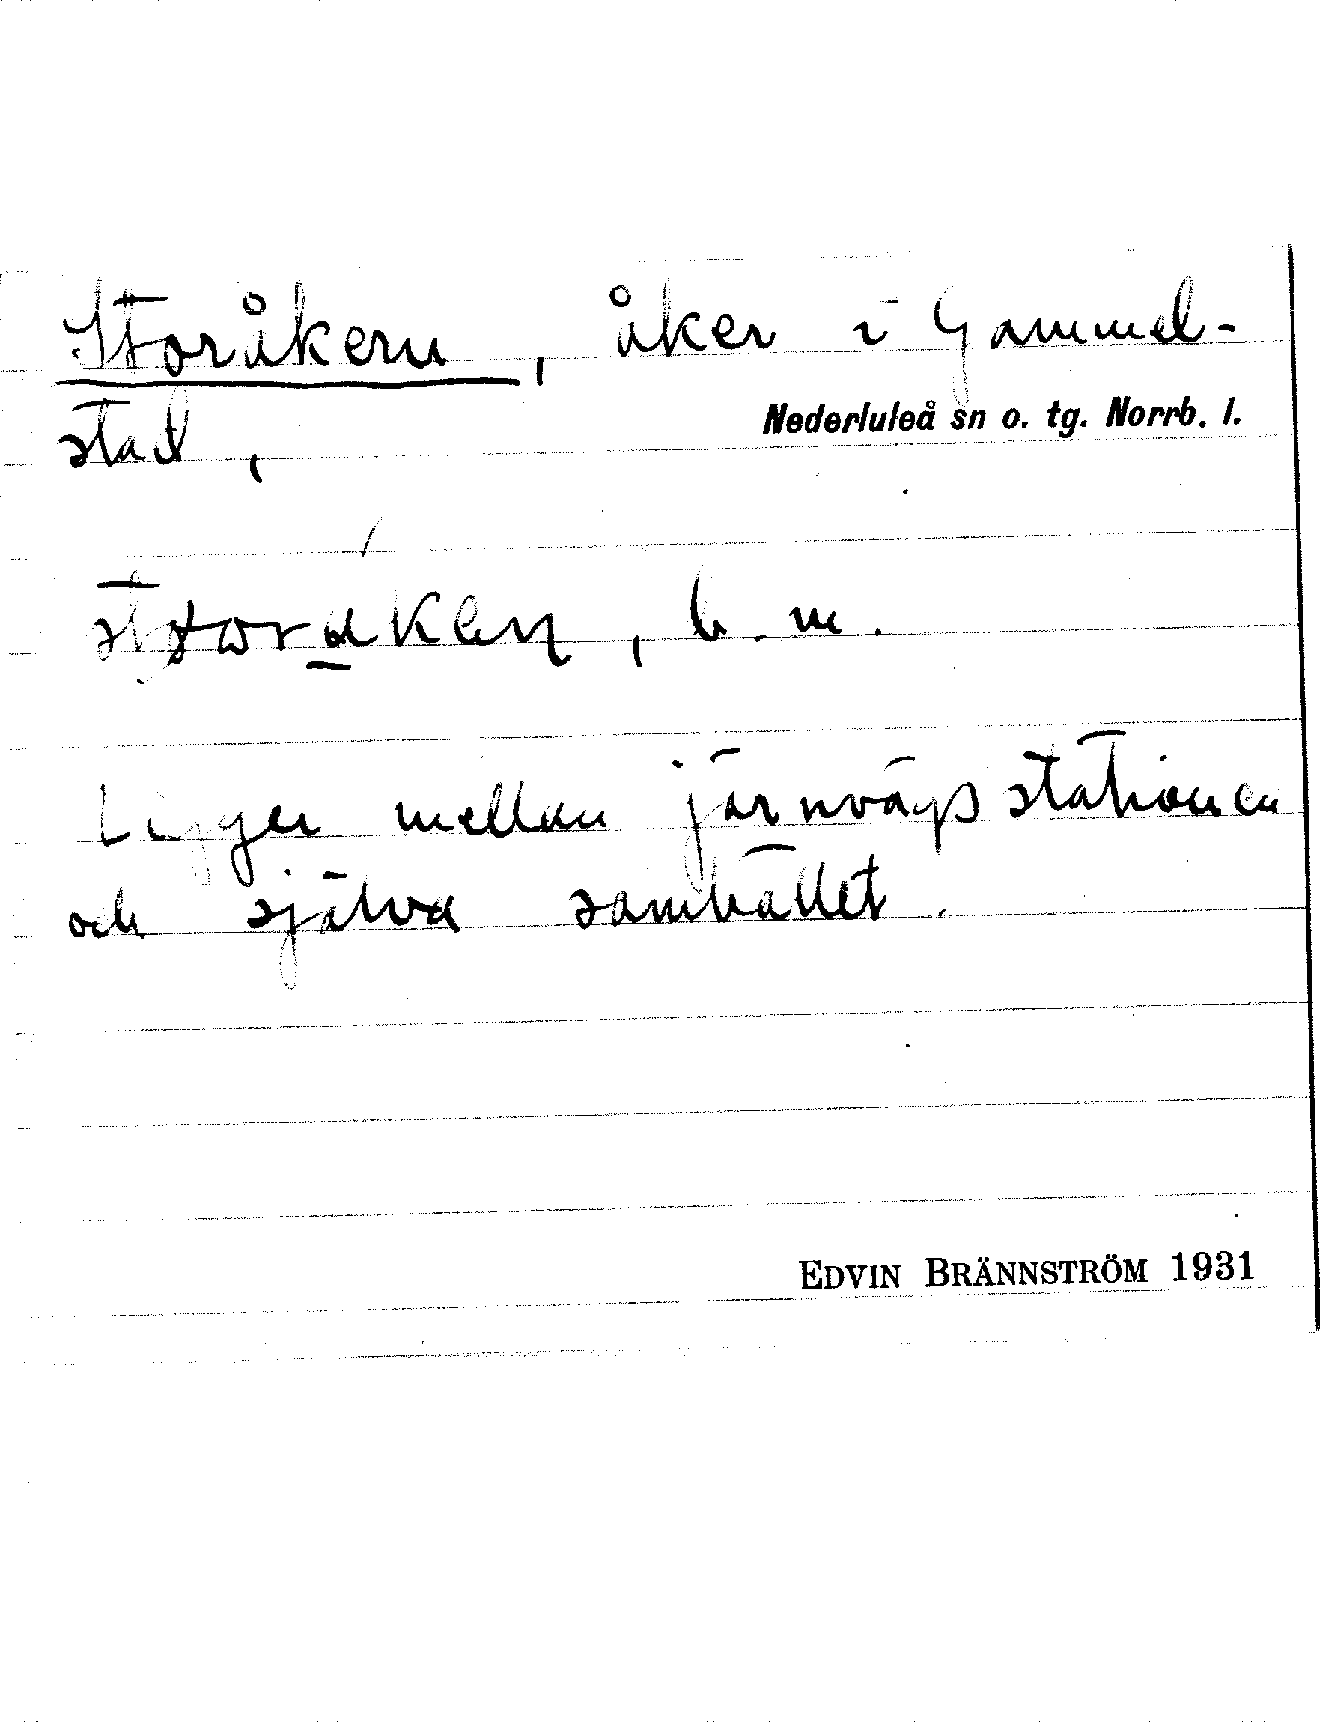 Storåkern, åker i Gammel-
stad, Nederluleå sn o. tg. Norrb. l.
b. m.
Ligger mellan järnvägsstationen
och själva samhället.
EDVIN BRÄNNSTRÖM 1931